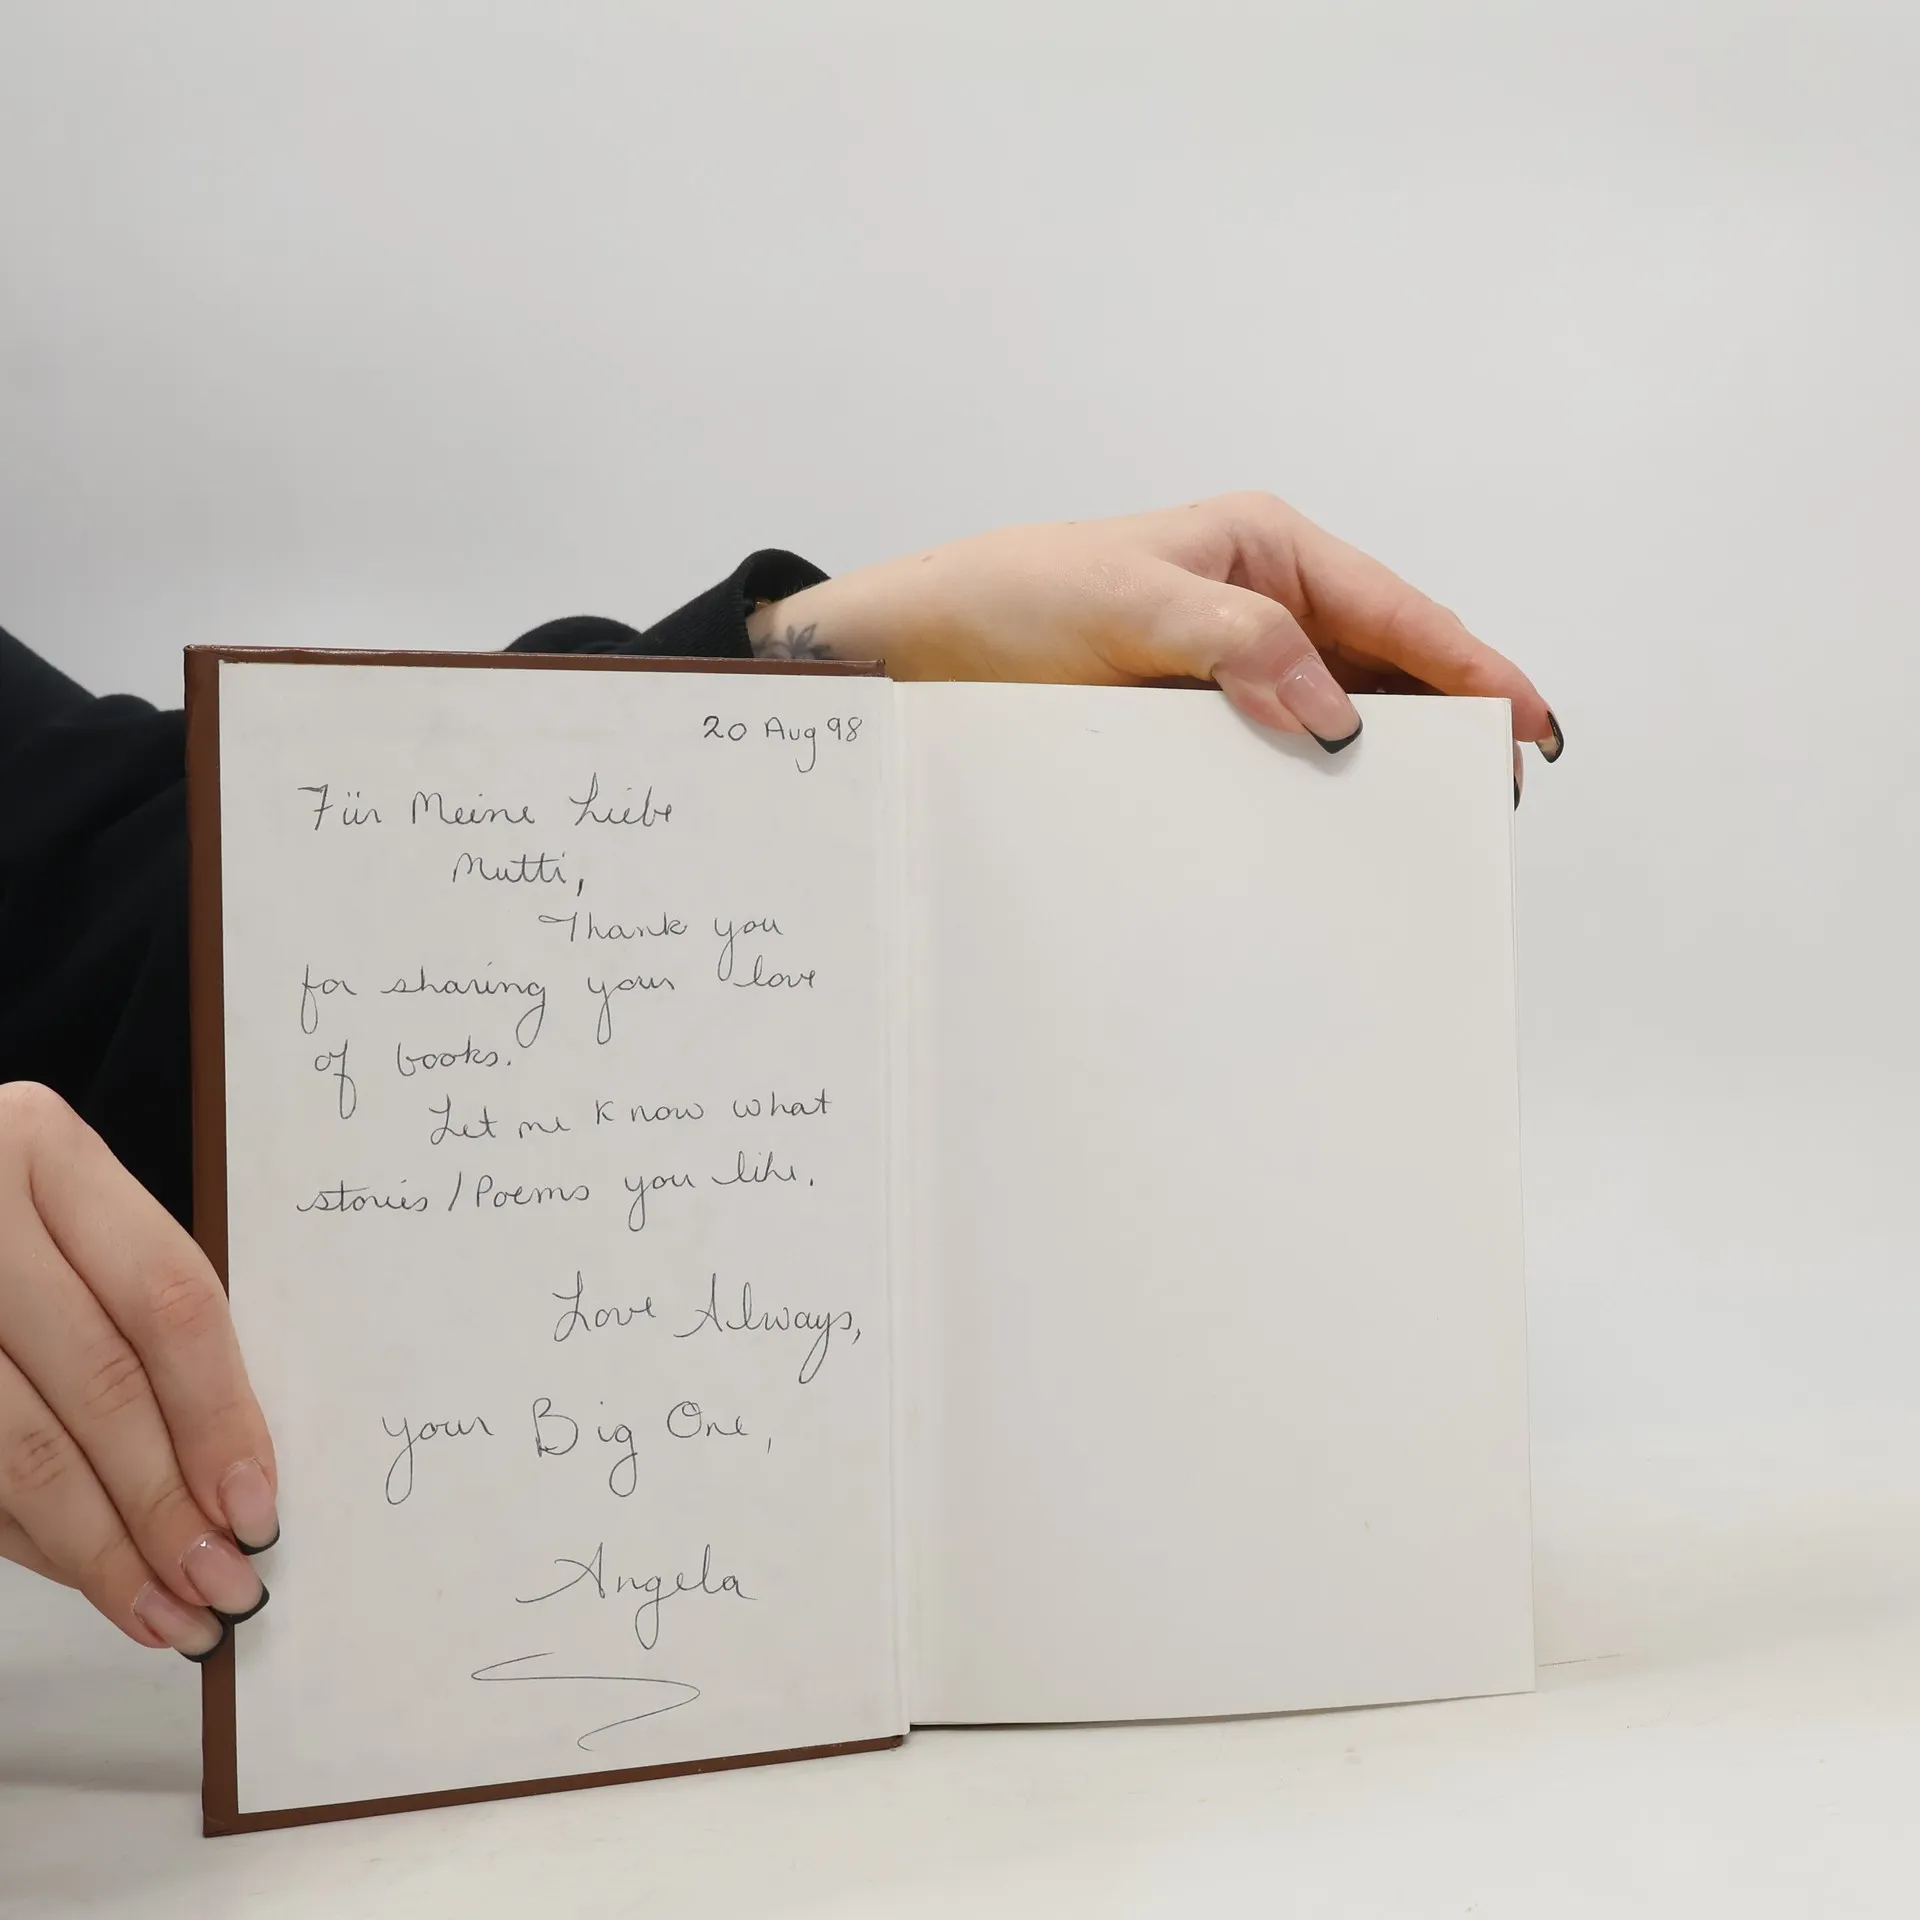 20 Aug 98
Für Meine Liebe
Mutti,
Thank you
for sharing your love
of books.
Let me know what
stories / Poems you like.
Love Always,
your Big One,
Angela